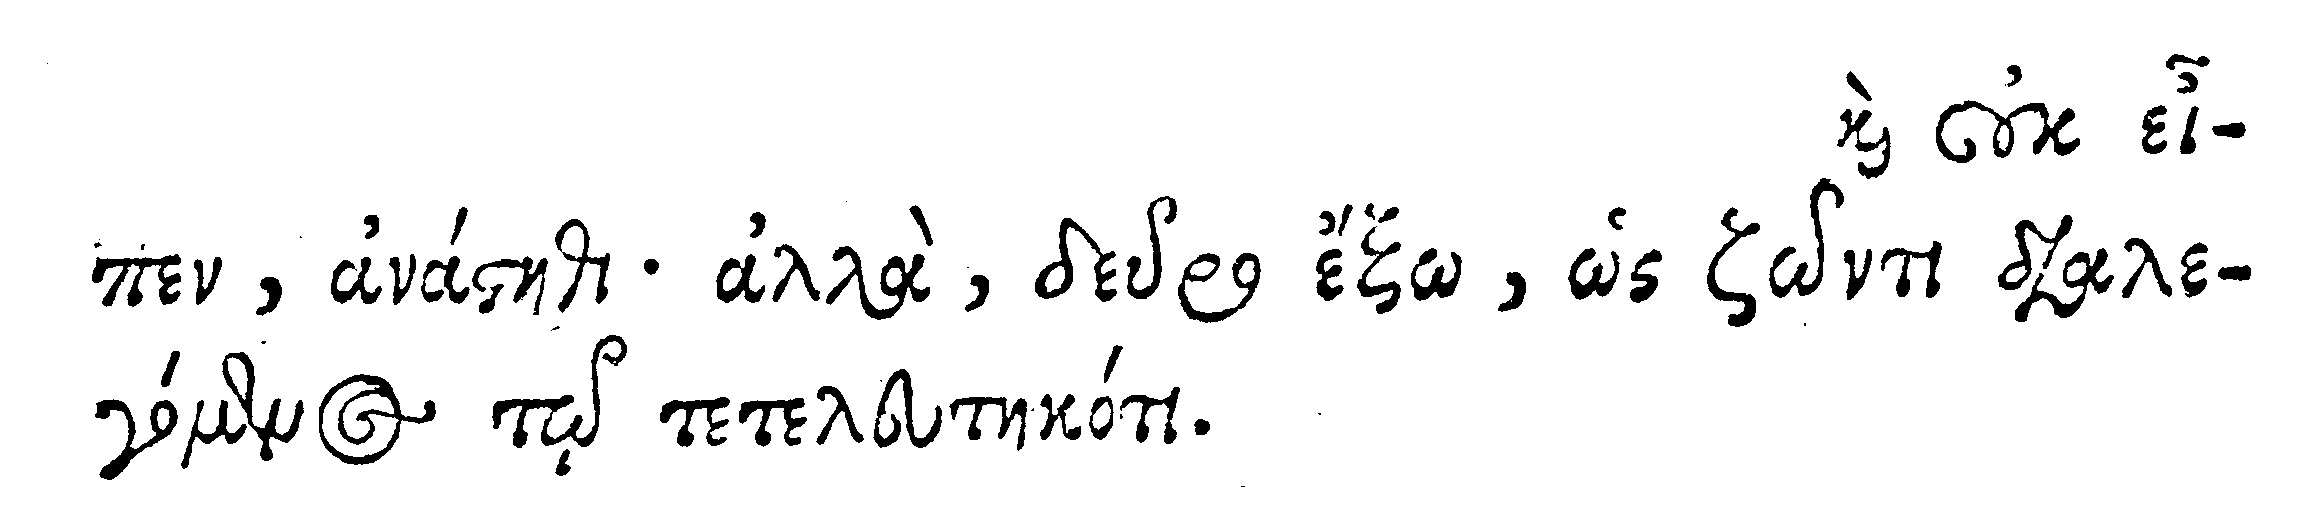 καὶ οὐκ εἶ-
πεν, ἀνάστηθι· ἀλλὰ, δεῦρο ἔξω, ὡς ζῶντι διαλε-
γόμενος τῷ τετελευτηκότι.